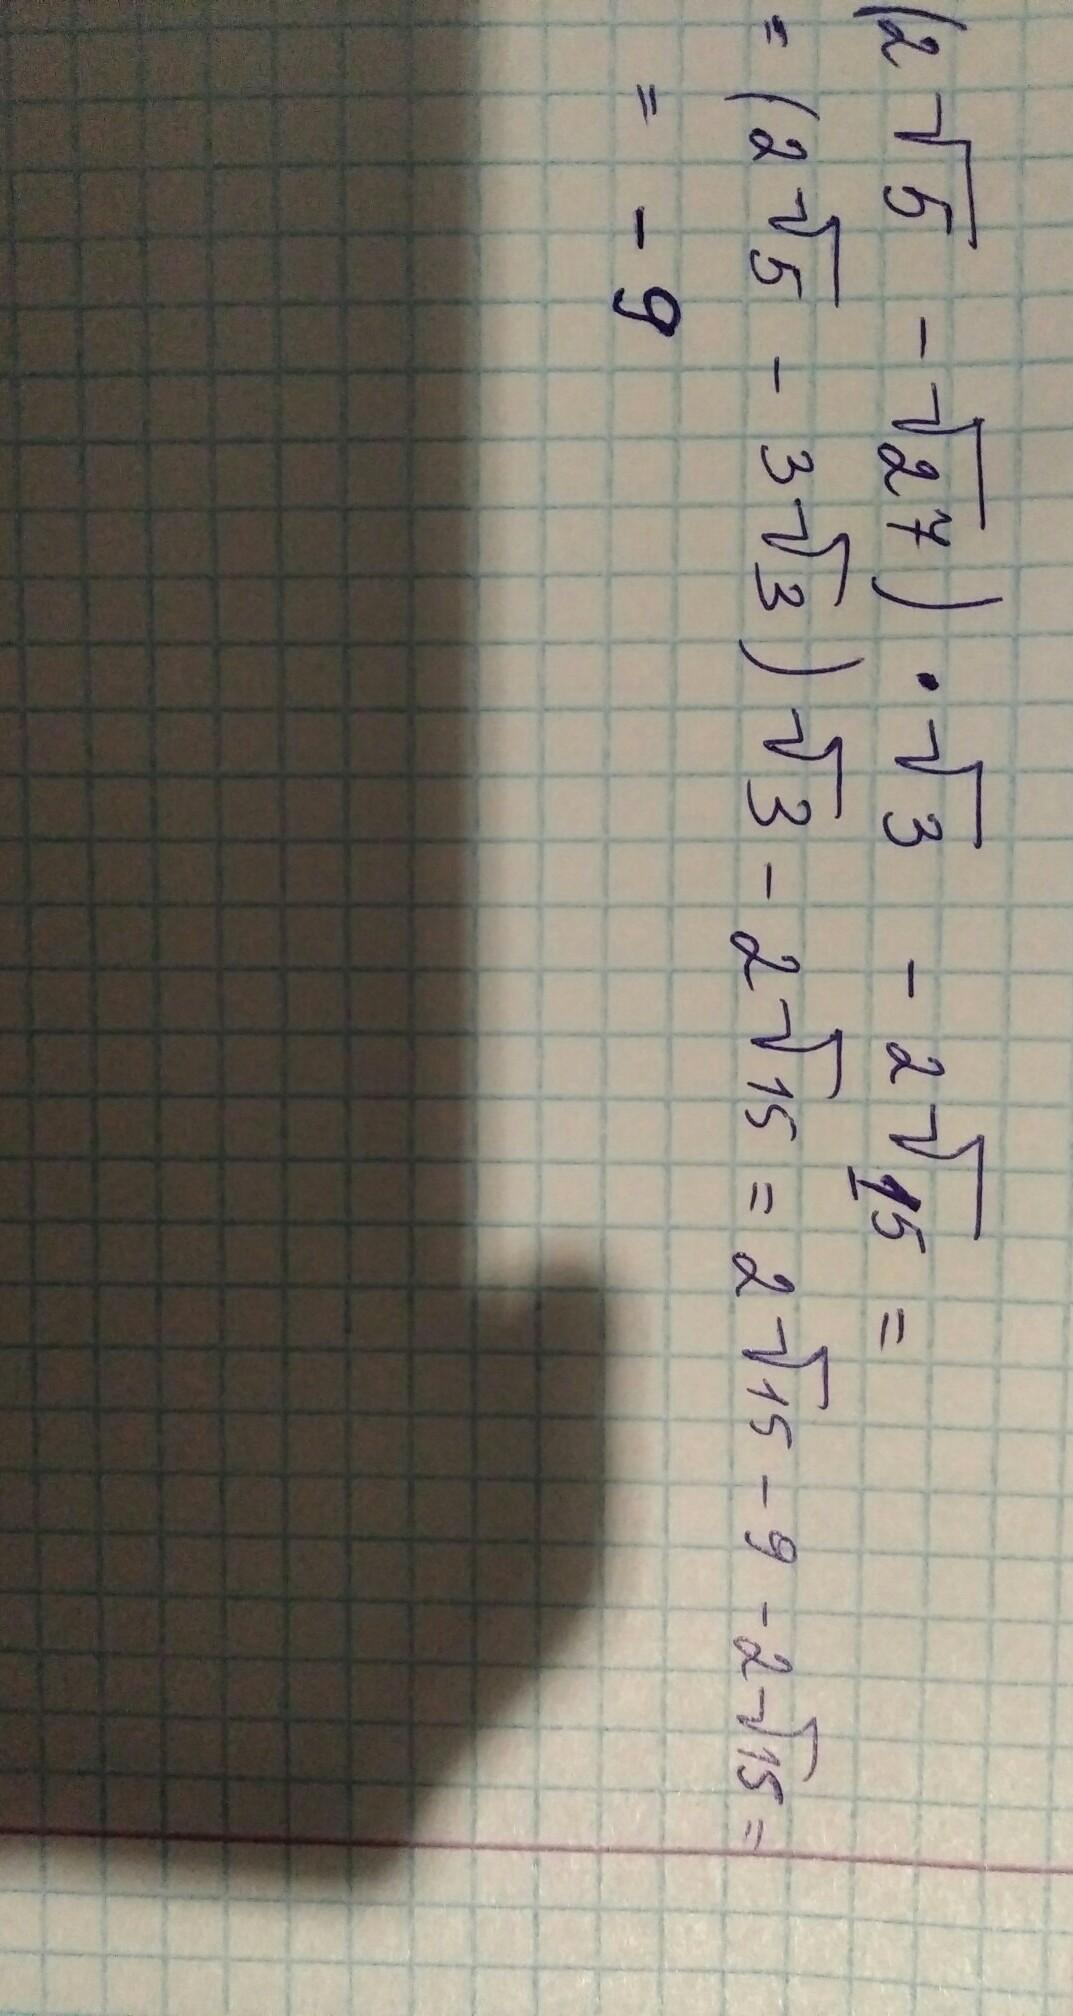 (2√5 - √27) · √3 - 2√15 =
= (2√5 - 3√3)√3 - 2√15 = 2√15 - 9 - 2√15 =
= - 9